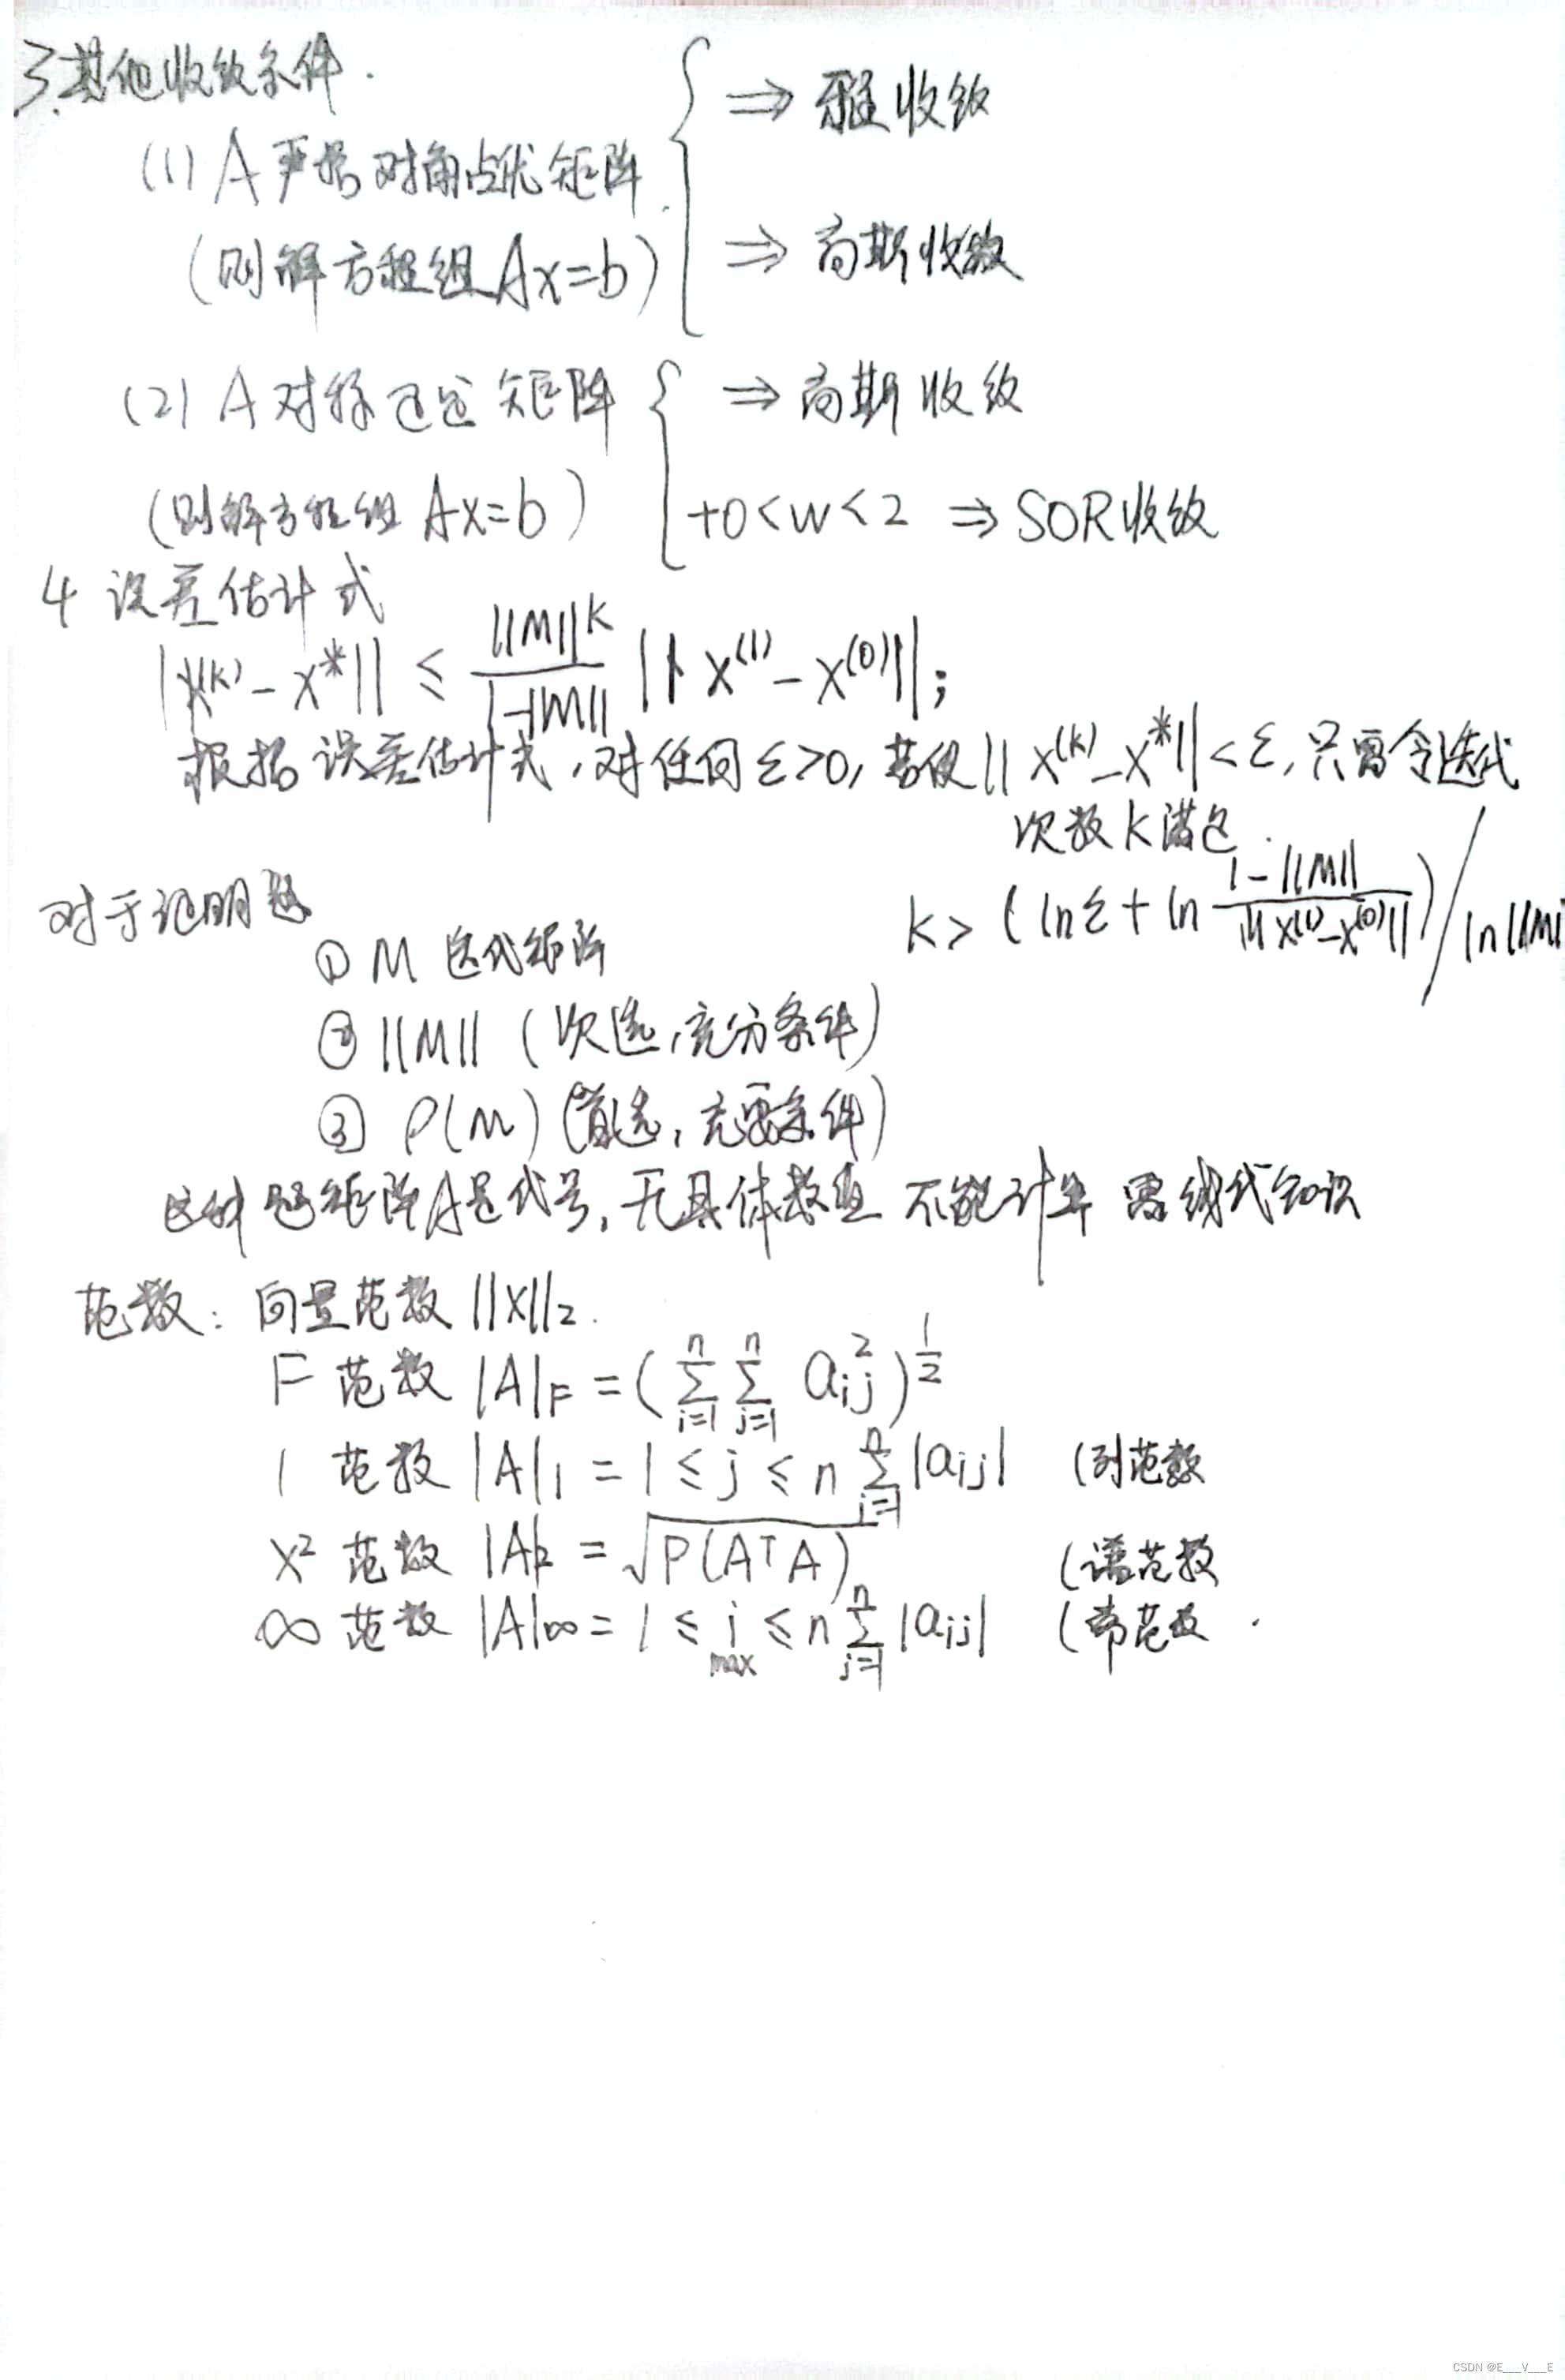 3.其他收敛条件.
(1) A 严格对角占优矩阵
(则解方程组Ax=b)
⇒ 雅收敛
⇒ 高斯收敛
(2) A 对称正定 矩阵
(则解方程组 Ax=b)
⇒ 高斯 收敛
+0<w<2 ⇒ SOR收敛
4 误差估计式
||x^(k) - x*|| ≤ ||M||^k / (1-||M||) ||x^(1) - x^(0)||;
根据 误差估计式,对任何 ε>0,若使||x^(k) - x*||<ε,只需令迭代
次数k满足
k > (lnε + ln (1-||M||)/||x^(1)-x^(0)||) / ln||M||
对于证明题
① M 迭代矩阵
② ||M|| (次选,充分条件)
③ ρ(M) (首选,充要条件)
这种题矩阵A是代号,无具体数值 不能计算 需线代知识
范数: 向量范数 ||x||₂.
F 范数 |A|F = (∑_{i=1}^{n} ∑_{j=1}^{n} a_{ij}^2)^{1/2}
1 范数 |A|₁ = 1 ≤ j ≤ n ∑_{i=1}^{n} |a_{ij}| (列范数
x² 范数 |A|₂ = √ρ(A^T A) (谱范数
∞ 范数 |A|∞ = 1 ≤ i ≤ n max ∑_{j=1}^{n} |a_{ij}| ( 范数.
CSDN @E__V__F